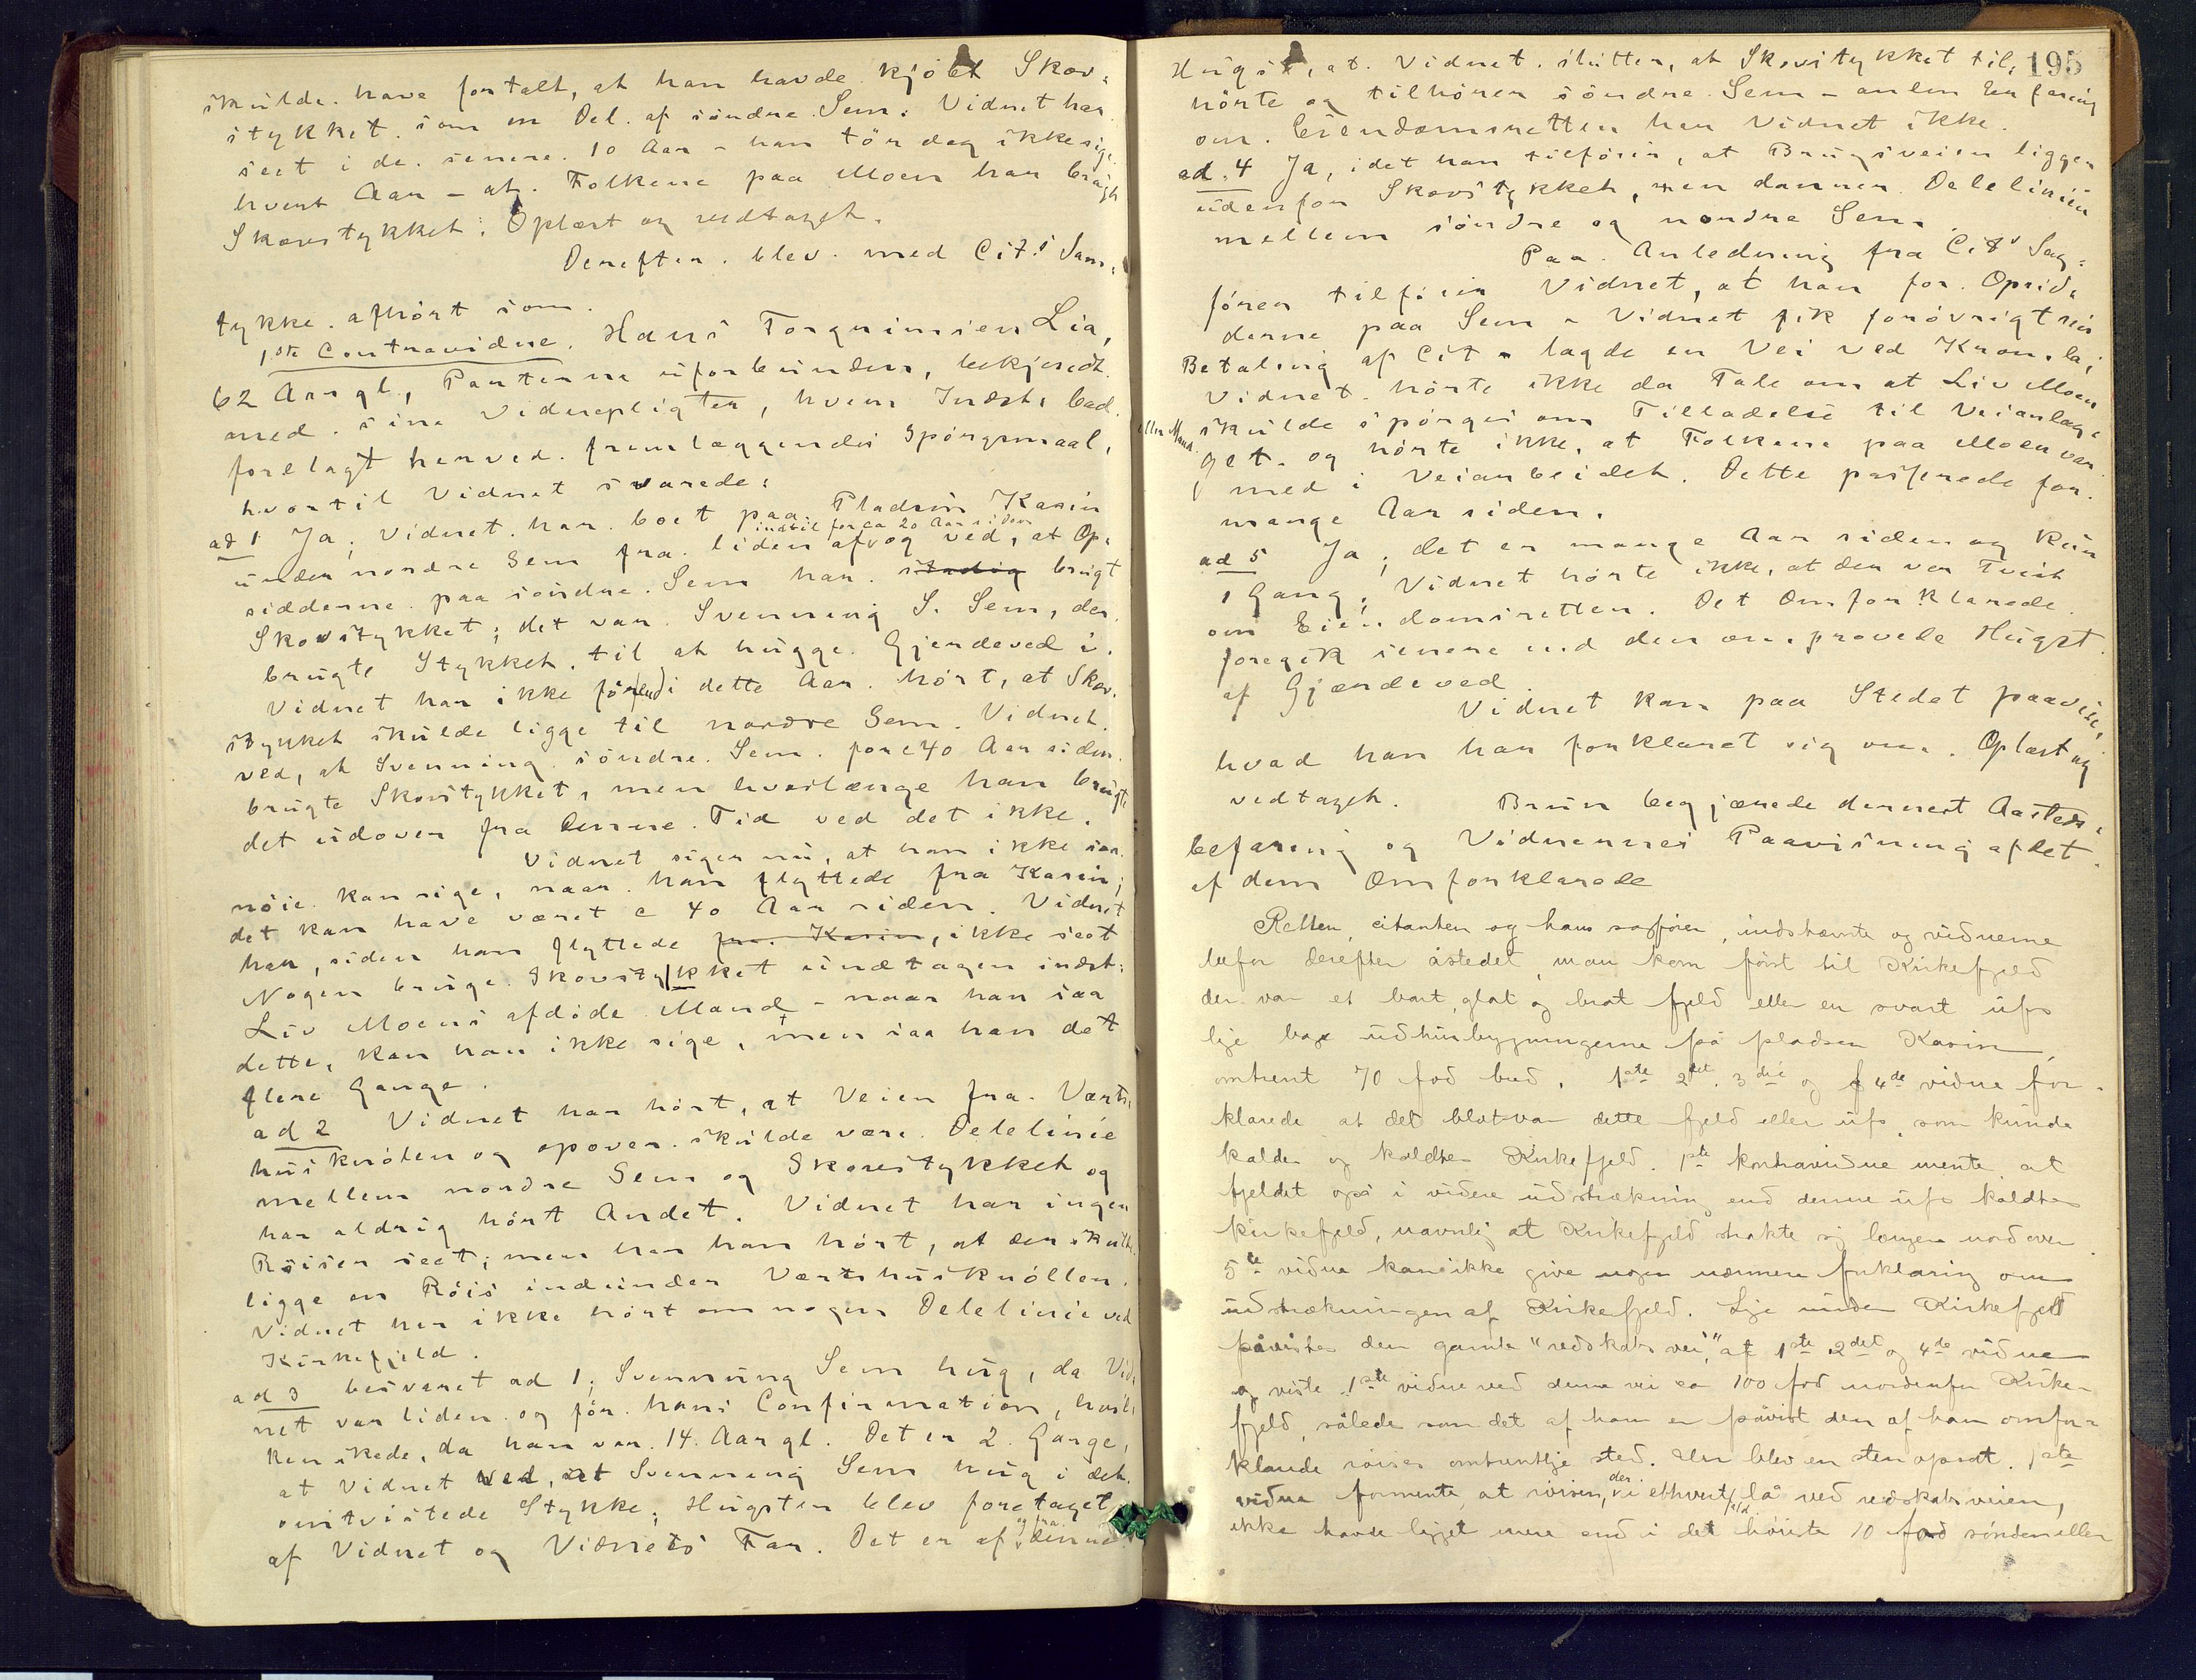 skulde have fortalt, at han havde kjøbt Skov-
stykket som en Del af søndre Sem. Vidnet har
seet i de senere 10 Aar – han tør dog ikke sige
hvert Aar – at Folkene paa Moen har brugt
Skovstykket. Oplæst og vedtaget.
Derefter blev med Cits Sam-
tykke afhørt som
1ste Contravidne. Hans Torgrimsen Lia,
62 Aar gl., Parterne uforbunden, bekjendt
med sine Vidnepligter, hvem Indst. bad
forelagt herved fremlæggendes Spørgsmaal,
hvortil Vidnet svarede:
ad 1 Ja; Vidnet har boet paa Pladsen Kasin
indtil for ca 20 Aar siden
under nordre Sem fra liden af og ved, at Op-
sidderne paa søndre Sem har stadig brugt
Skovstykket; det var Svennung S. Sem, der
brugte Stykket til at hugge Gjerdeved i.
Vidnet har ikke førend i dette Aar hørt, at Skov-
stykket skulde ligge til nordre Sem. Vidnet
ved, at Svennung søndre Sem for c 40 Aar siden
brugte Skovstykket, men hvorlænge han brugte
det udover fra denne Tid ved det ikke.
Vidnet siger nu, at han ikke saa
nøie kan sige, naar han flyttede fra Kasin;
det kan have været c 40 Aar siden. Vidnet
har, siden han flyttede fra Kasin, ikke seet
Nogen bruge Skovstykket undtagen indst.
Liv Moens afdøde Mand – naar han saa
dette, kan han ikke sige, men saa han det
flere Gange.
ad 2 Vidnet har hørt, at Veien fra Værts-
husknølen og opover skulde være Delelinie
mellem nordre Sem og Skovstykket og
har aldrig hørt Andet. Vidnet har ingen
Røiser seet; men han har hørt, at der skulde
ligge en Røis indunder Værtshusknøllen.
Vidnet har ikke hørt om nogen Delelinie ved
Kirkefjeld.
ad 3 besvaret ad 1; Svennung Sem hug, da Vid-
net var liden og før hans Confirmation, hvil-
ken skede, da han var 14 Aar gl. Det er 2 Gange,
at Vidnet ved, at Svennung Sem hug i det
omtvistede Stykke; Hugsten blev foretaget
og fra
af Vidnet og Vidnets Far. Det er af denne
195
Hugst, at Vidnet slutter, at Skovstykket til-
hørte og tilhører søndre Sem – anden Erfaring
om Eiendomsretten har Vidnet ikke.
ad 4 Ja, idet han tilføier, at Brugsveien ligger
udenfor Skovstykket, men danner Delelinien
mellem søndre og nordre Sem.
Paa Anledning fra Cits Sag-
fører tilføier Vidnet, at han for Opsid-
derne paa Sem – Vidnet fik forøvrigt sin
Betaling af Cit – lagde en Vei ved
Vidnet hørte ikke da Tale om at Liv Moen
eller Mand
skulde spørges om Tilladelse til Veianlæg-
get og hørte ikke, at Folkene paa Moen var
med i Veiarbeidet. Dette passerede for
mange Aar siden.
ad 5 Ja; det er mange Aar siden og kun
1 Gang; Vidnet hørte ikke, at der var Tvist
om Eiendomsretten. Det Omforklarede
foregik senere end den omprovede Hugst
af Gjærdeved.
Vidnet kan paa Stedet paavise,
hvad han har forklaret sig om. Oplæst og
vedtaget.
Brun begjærede dernæst Aasteds-
befaring og Vidnernes Paavisning af det
af dem Omforklarede
Retten, citanten og hans sagfører, indstævnte og vidnerne
befor derefter åstedet, man kom først til Kirkefjeld
der var et bart, glat og brat fjeld eller en svart ufs
lige bag udhusbygningerne på pladsen Kasin,
omtrent 70 fod bred. 1ste 2det 3die og 4de vidne for-
klarede at det blot var dette fjeld eller ufs, som kunde
kaldes og kaldtes Kirkefjeld. 1ste kontravidne mente at
fjeldet også i videre udstrækning end denne ufs kaldtes
kirkefjeld, navnlig at Kirkefjeld strakte sig længer nordover
5te vidne kan ikke give nogen nærmere forklaring om
udstrækningen af Kirkefjeld. Lige under Kirkefjeld
påvistes den gamle "redskabsvei" af 1ste 2det og 4de vidne
og viste 1ste vidne ved denne vei ca 100 fod nordenfor Kirke-
fjeld, således som det af ham er påvist den af ham omfor-
klarede røises omtrentlige sted. Her blev en sten opsat. 1ste
vidne formente at røisen, der i ethvert fald lå ved redskabsveien,
ikke havde ligget mere end i det høieste 10 fod sønden eller